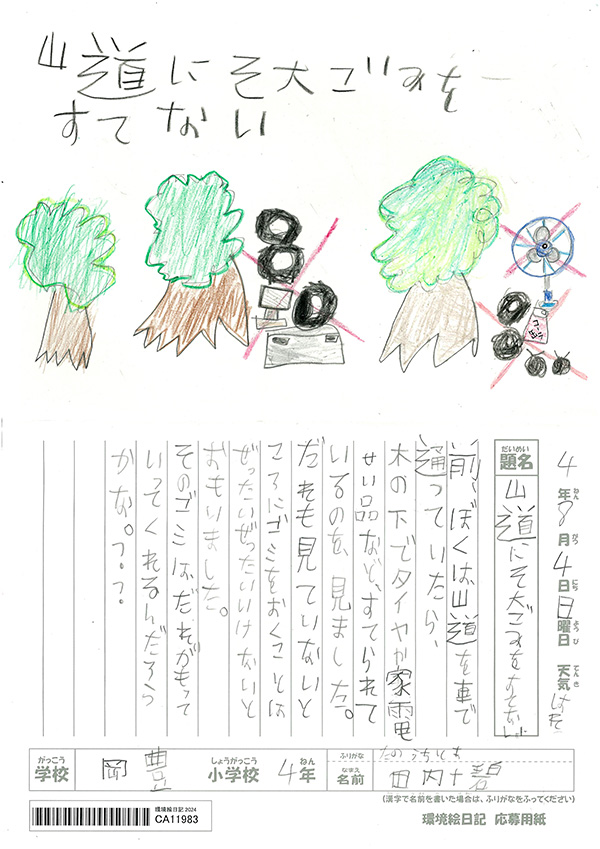 山道にそ大ごみを
すてない
4年8月4日日曜日 天気 はれ
だいめい
題名 山道にそ大ごみをすてない
前、ぼくは山道を車で
通っていたら、
木の下でタイヤか家電
せい品など、すてられて
いるのを、見ました。
だれも見ていないと
ころにゴミをおくことは
ぜったいぜったいいけないと
おもいました。
そのゴミはだれがもって
いってくれるんだろう
かな。?・?
がっこう
学校 岡豊 しょうがっこう
小学校 4年
ふりがな たのうちとも
なまえ
名前 田内十碧
(漢字で名前を書いた場合は、ふりがなをふってください)
環境絵日記2024
CA11983
環境絵日記 応募用紙